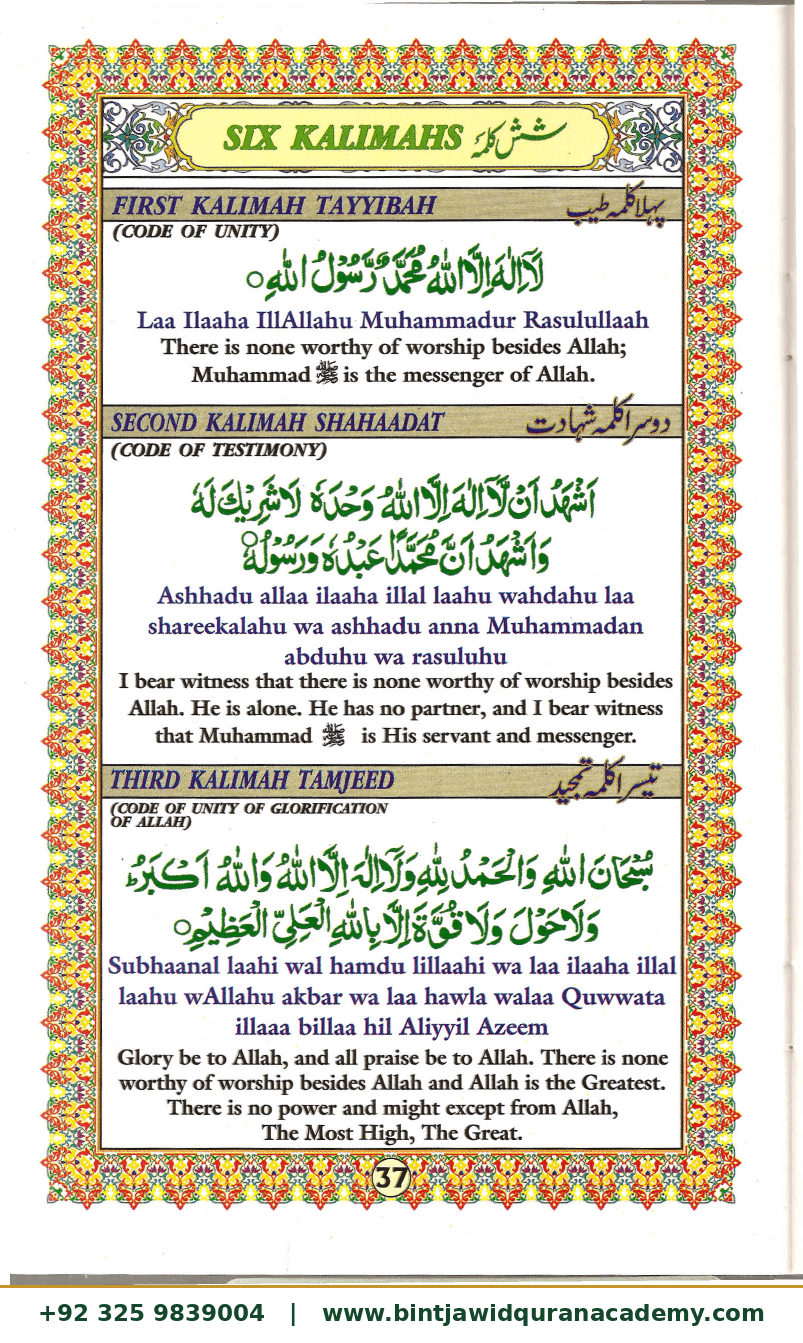 SIX KALIMAHS شش کلمۂ
FIRST KALIMAH TAYYIBAH پہلا کلمہ طیب
(CODE OF UNITY)
لَاۤ اِلٰهَ اِلَّا اللّٰهُ مُحَمَّدٌ رَّسُوْلُ اللّٰهِ ○
Laa Ilaaha IllAllahu Muhammadur Rasulullaah
There is none worthy of worship besides Allah;
Muhammad ﷺ is the messenger of Allah.
SECOND KALIMAH SHAHAADAT دوسرا کلمہ شہادت
(CODE OF TESTIMONY)
اَشْهَدُ اَنْ لَّاۤ اِلٰهَ اِلَّا اللّٰهُ وَحْدَهٗ لَا شَرِيْكَ لَهٗ
وَاَشْهَدُ اَنَّ مُحَمَّدًا عَبْدُهٗ وَرَسُوْلُهٗ ○
Ashhadu allaa ilaaha illal laahu wahdahu laa
shareekalahu wa ashhadu anna Muhammadan
abduhu wa rasuluhu
I bear witness that there is none worthy of worship besides
Allah. He is alone. He has no partner, and I bear witness
that Muhammad ﷺ is His servant and messenger.
THIRD KALIMAH TAMJEED تیسرا کلمہ تمجید
(CODE OF UNITY OF GLORIFICATION
OF ALLAH)
سُبْحَانَ اللّٰهِ وَالْحَمْدُ لِلّٰهِ وَلَاۤ اِلٰهَ اِلَّا اللّٰهُ وَاللّٰهُ اَكْبَرُ ؕ
وَلَا حَوْلَ وَلَا قُوَّةَ اِلَّا بِاللّٰهِ الْعَلِيِّ الْعَظِيْمِ ○
Subhaanal laahi wal hamdu lillaahi wa laa ilaaha illal
laahu wAllahu akbar wa laa hawla walaa Quwwata
illaaa billaa hil Aliyyil Azeem
Glory be to Allah, and all praise be to Allah. There is none
worthy of worship besides Allah and Allah is the Greatest.
There is no power and might except from Allah,
The Most High, The Great.
37
+92 325 9839004 | www.bintjawidquranacademy.com